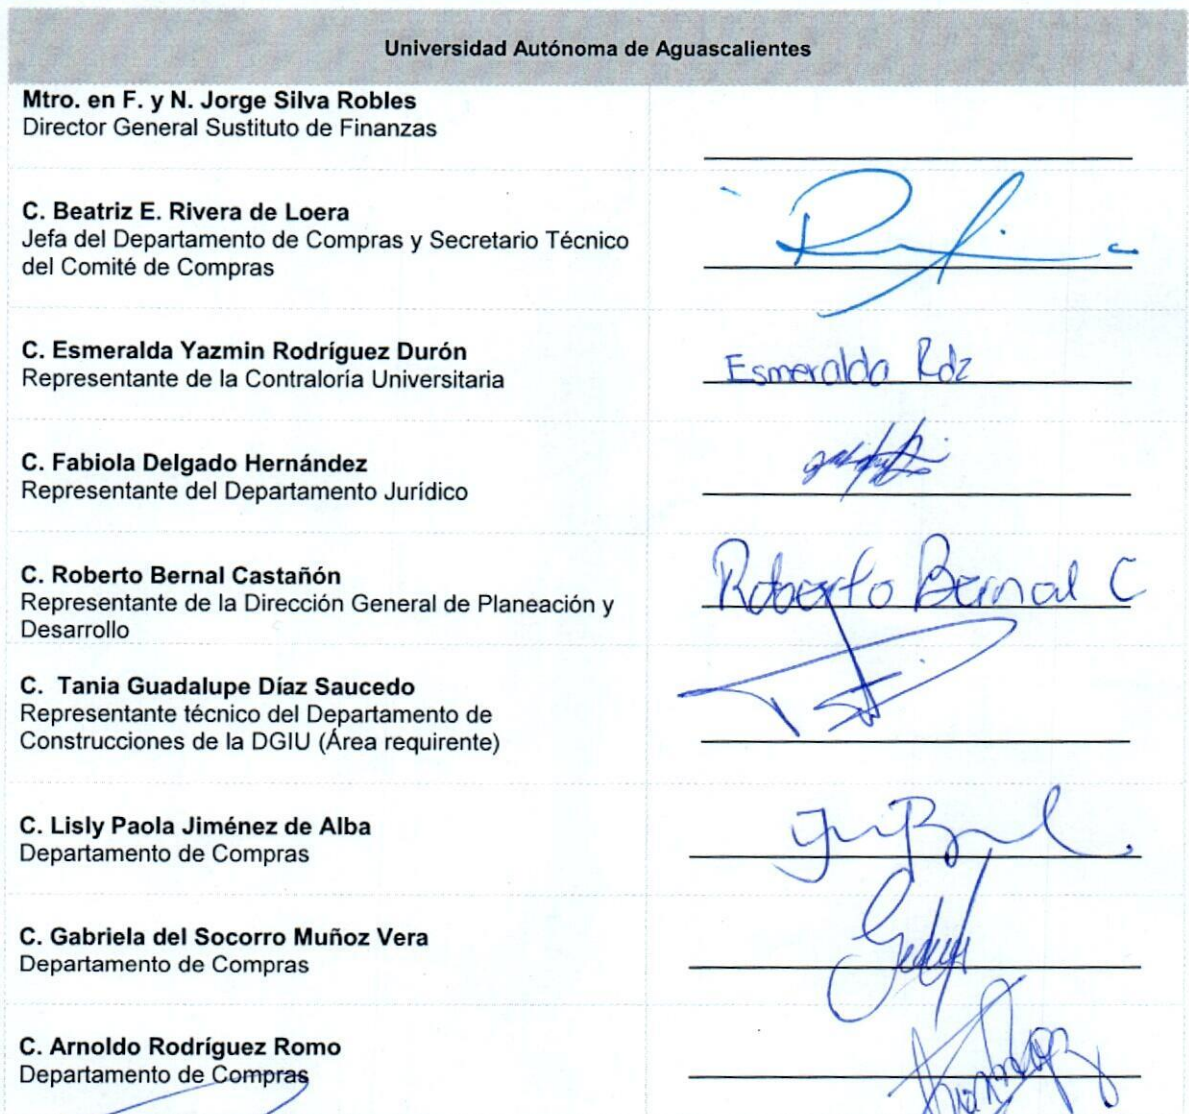 Universidad Autónoma de Aguascalientes
Mtro. en F. y N. Jorge Silva Robles
Director General Sustituto de Finanzas
C. Beatriz E. Rivera de Loera
Jefa del Departamento de Compras y Secretario Técnico
del Comité de Compras
C. Esmeralda Yazmin Rodríguez Durón
Esmeralda Rdz
Representante de la Contraloría Universitaria
C. Fabiola Delgado Hernández
Representante del Departamento Jurídico
C. Roberto Bernal Castañón
Roberto Bernal C
Representante de la Dirección General de Planeación y
Desarrollo
C. Tania Guadalupe Díaz Saucedo
Representante técnico del Departamento de
Construcciones de la DGIU (Área requirente)
C. Lisly Paola Jiménez de Alba
Departamento de Compras
C. Gabriela del Socorro Muñoz Vera
Departamento de Compras
C. Arnoldo Rodríguez Romo
Departamento de Compras